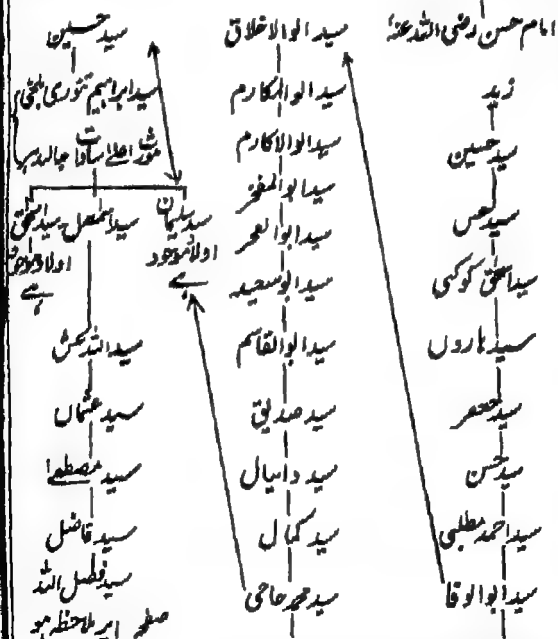 امام حسن رضی اللہ عنہ
زید
سید حسین
سید حسن
سید اسحٰق کوکبی
سید ہاروں
سید جعفر
سید حسن
سید احمد مطلبی
سید ابوالوفا
سید ابوالاخلاق
سید ابوالمکارم
سید ابوالاکارم
سید ابوالمفخر
سید ابوالفخر
سید ابوسعید
سید ابوالقاسم
سید صدیق
سید دانیال
سید کمال
سید محمد حاجی
سید حسین
سید ابراہیم تنوری بلخی
مورث اعلےٰ سادات جالندہر
سید سلیمان
اولاد موجود
ہے
سید اسمٰعیل
سید اسحٰق
اولاد موجود
ہے
سید اللہ بخش
سید عثماں
سید مصطفےٰ
سید فاضل
سید فضل اللہ
صفحہ پر ملاحظہ ہو